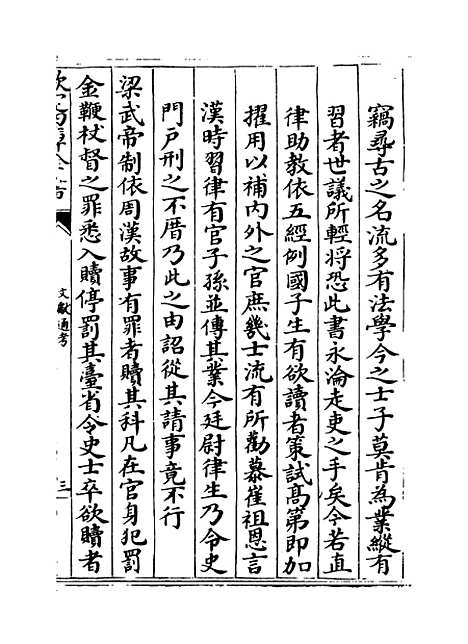 竊尋古之名流多有法學今之士子莫肯為業縱有
習者世議所輕將恐此書永淪走吏之手矣今若直
律助教依五經例國子生有欲讀者策試髙第即加
擢用以補内外之官庶幾士流有所勸慕崔祖思言
漢時習律有官子孫並傳其業今廷尉律生乃令史
門户刑之不厝乃此之由詔從其請事竟不行
梁武帝制依周漢故事有罪者贖其科凡在官身犯罰
金鞭杖督之罪悉入贖停罰其臺省令史士卒欲贖者
文獻通考
三